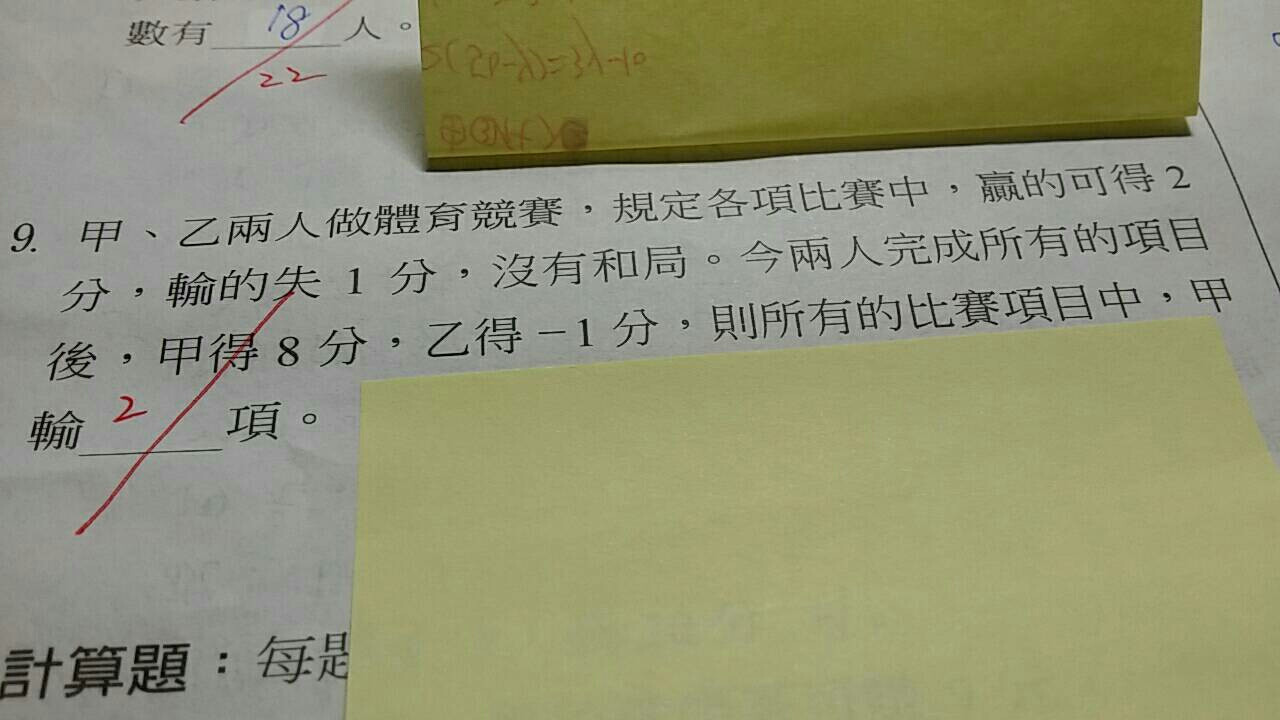 數有 18 人。
22
9. 甲、乙兩人做體育競賽，規定各項比賽中，贏的可得 2
分，輸的失 1 分，沒有和局。今兩人完成所有的項目
後，甲得 8 分，乙得 −1 分，則所有的比賽項目中，甲
輸 2 項。
計算題：每